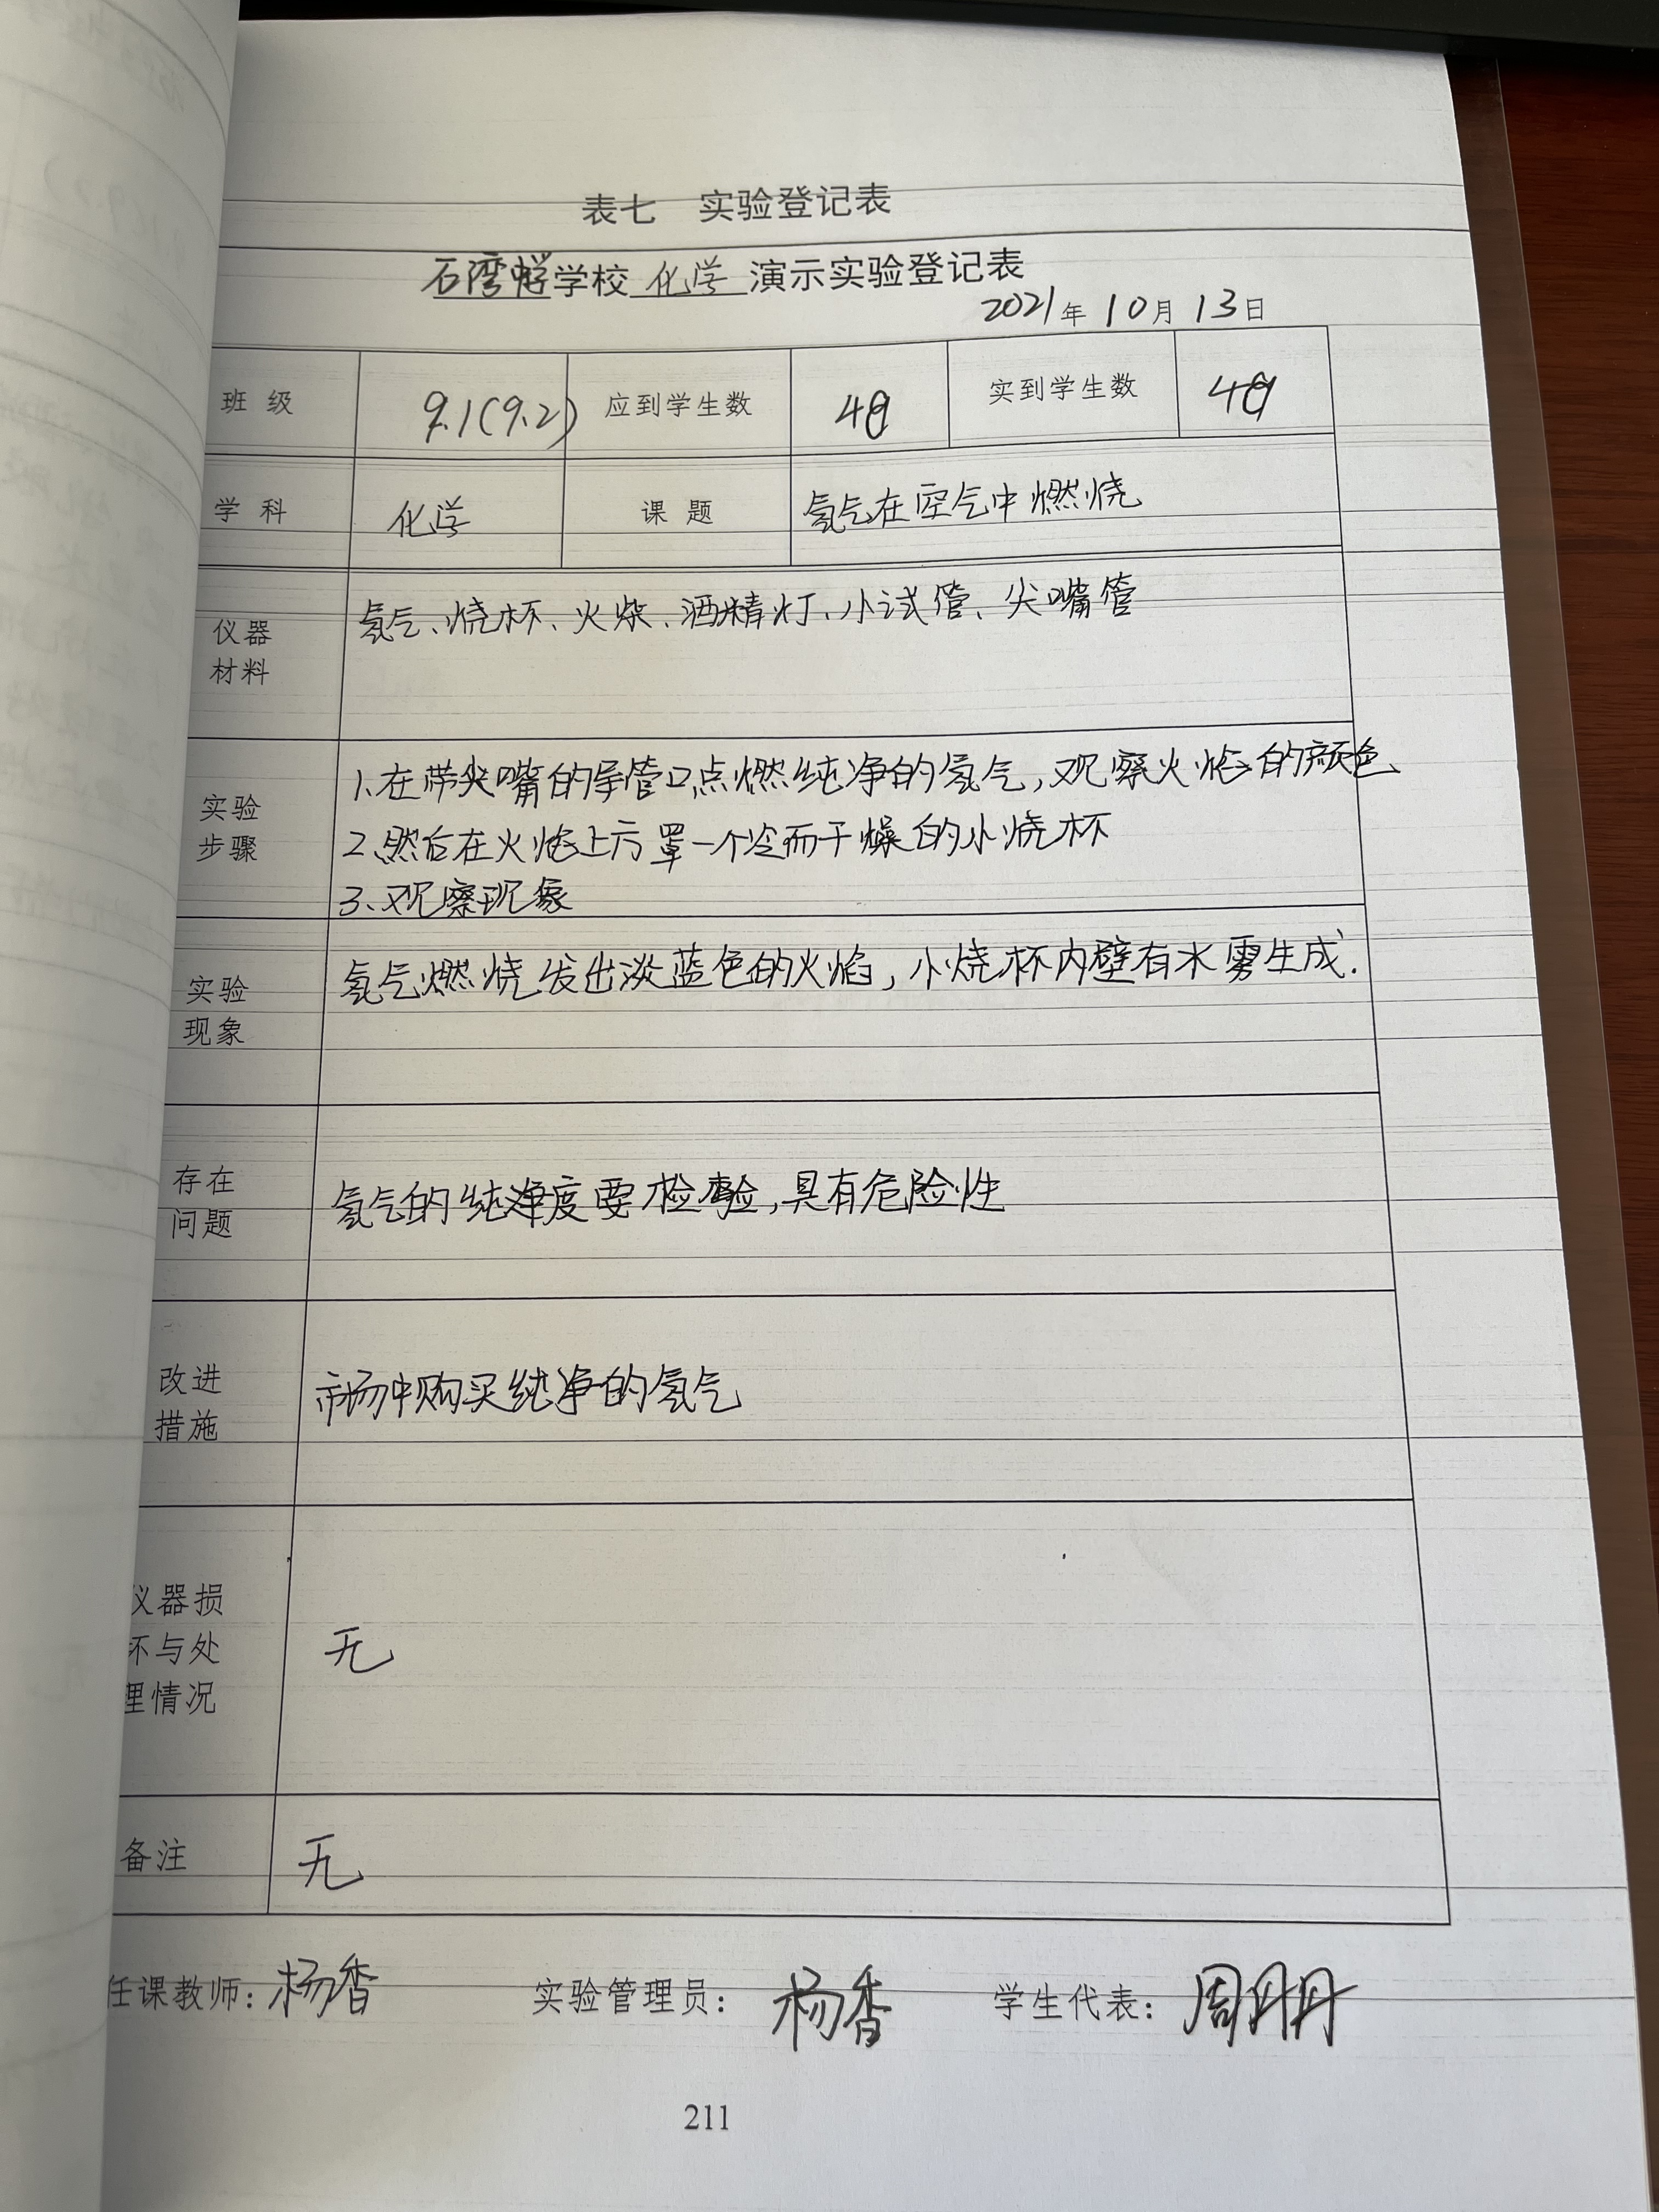 表七 实验登记表
石湾中学学校 化学 演示实验登记表
2021年10月13日
班 级 9.1(9.2) 应到学生数 实到学生数
学 科 化学 课 题 氢气在空气中燃烧
仪器
材料
氢气、烧杯、火柴、酒精灯、小试管、尖嘴管
实验
步骤
1、在带尖嘴的导管口点燃纯净的氢气,观察火焰的颜色
2、然后在火焰上方罩一个冷而干燥的小烧杯
3、观察现象
实验
现象
氢气燃烧发出淡蓝色的火焰,小烧杯内壁有水雾生成.
存在
问题
氢气的纯净度要检验,具有危险性
改进
措施
市场中购买纯净的氢气
仪器损
坏与处
理情况
无
备注 无
任课教师:杨香 实验管理员:杨香 学生代表:周丹丹
211